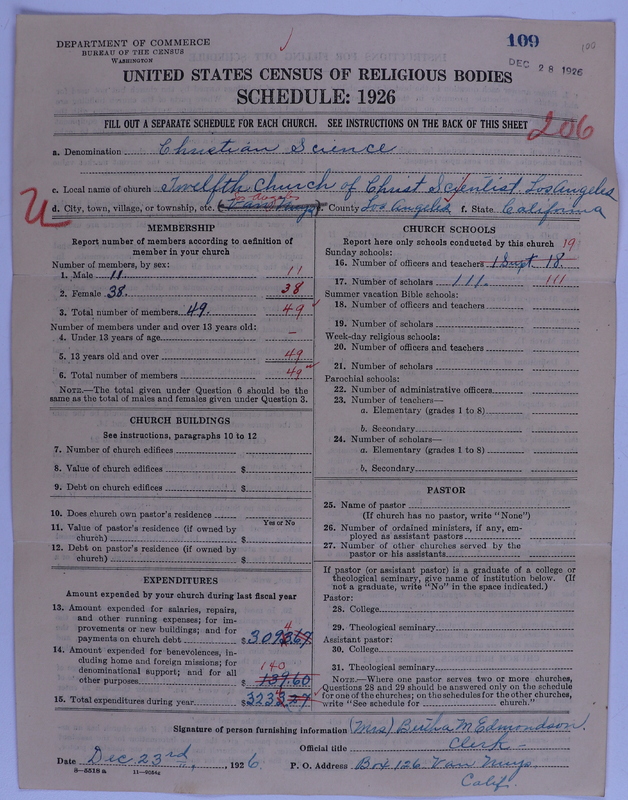 DEPARTMENT OF COMMERCE
BUREAU OF THE CENSUS
WASHINGTON
109
100
DEC 28 1926
UNITED STATES CENSUS OF RELIGIOUS BODIES
SCHEDULE: 1926
FILL OUT A SEPARATE SCHEDULE FOR EACH CHURCH. SEE INSTRUCTIONS ON THE BACK OF THIS SHEET
206
a. Denomination Christian Science
c. Local name of church Twelfth Church of Christ Scientist, Los Angeles
Los Angeles
d. City, town, village, or township, etc. (Van Nuys) e. County Los Angeles f. State California
U
MEMBERSHIP
Report number of members according to definition of
member in your church
Number of members, by sex:
1. Male 11. 11
2. Female 38. 38
3. Total number of members 49. 49
Number of members under and over 13 years old:
4. Under 13 years of age –
5. 13 years old and over 49
6. Total number of members 49
NOTE.—The total given under Question 6 should be the
same as the total of males and females given under Question 3.
CHURCH BUILDINGS
See instructions, paragraphs 10 to 12
7. Number of church edifices
8. Value of church edifices $
9. Debt on church edifices $
10. Does church own pastor's residence
Yes or No
11. Value of pastor's residence (if owned by
church) $
12. Debt on pastor's residence (if owned by
church) $
EXPENDITURES
Amount expended by your church during last fiscal year
13. Amount expended for salaries, repairs,
and other running expenses; for im-
provements or new buildings; and for
payments on church debt $
14. Amount expended for benevolences, in-
cluding home and foreign missions; for
denominational support; and for all
140
other purposes 139.60
15. Total expenditures during year $
CHURCH SCHOOLS
Report here only schools conducted by this church
19
Sunday schools:
16. Number of officers and teachers 1 Supt. 18.
17. Number of scholars 111. 111
Summer vacation Bible schools:
18. Number of officers and teachers
19. Number of scholars
Week-day religious schools:
20. Number of officers and teachers
21. Number of scholars
Parochial schools:
22. Number of administrative officers
23. Number of teachers—
a. Elementary (grades 1 to 8)
b. Secondary
24. Number of scholars—
a. Elementary (grades 1 to 8)
b. Secondary
PASTOR
25. Name of pastor
(If church has no pastor, write "None")
26. Number of ordained ministers, if any, em-
ployed as assistant pastors
27. Number of other churches served by the
pastor or his assistants
If pastor (or assistant pastor) is a graduate of a college or
theological seminary, give name of institution below. (If
not a graduate, write "No" in the space indicated.)
Pastor:
28. College
29. Theological seminary
Assistant pastor:
30. College
31. Theological seminary
NOTE.—Where one pastor serves two or more churches,
Questions 28 and 29 should be answered only on the schedule
for one of the churches; on the schedules for the other churches,
write "See schedule for church."
Signature of person furnishing information (Mrs) Bertha M Edmondson.
Official title Clerk -
Date Dec. 23rd, 1926. P. O. Address Box 126 Van Nuys
Calif.
8—5518 a 11—9084a